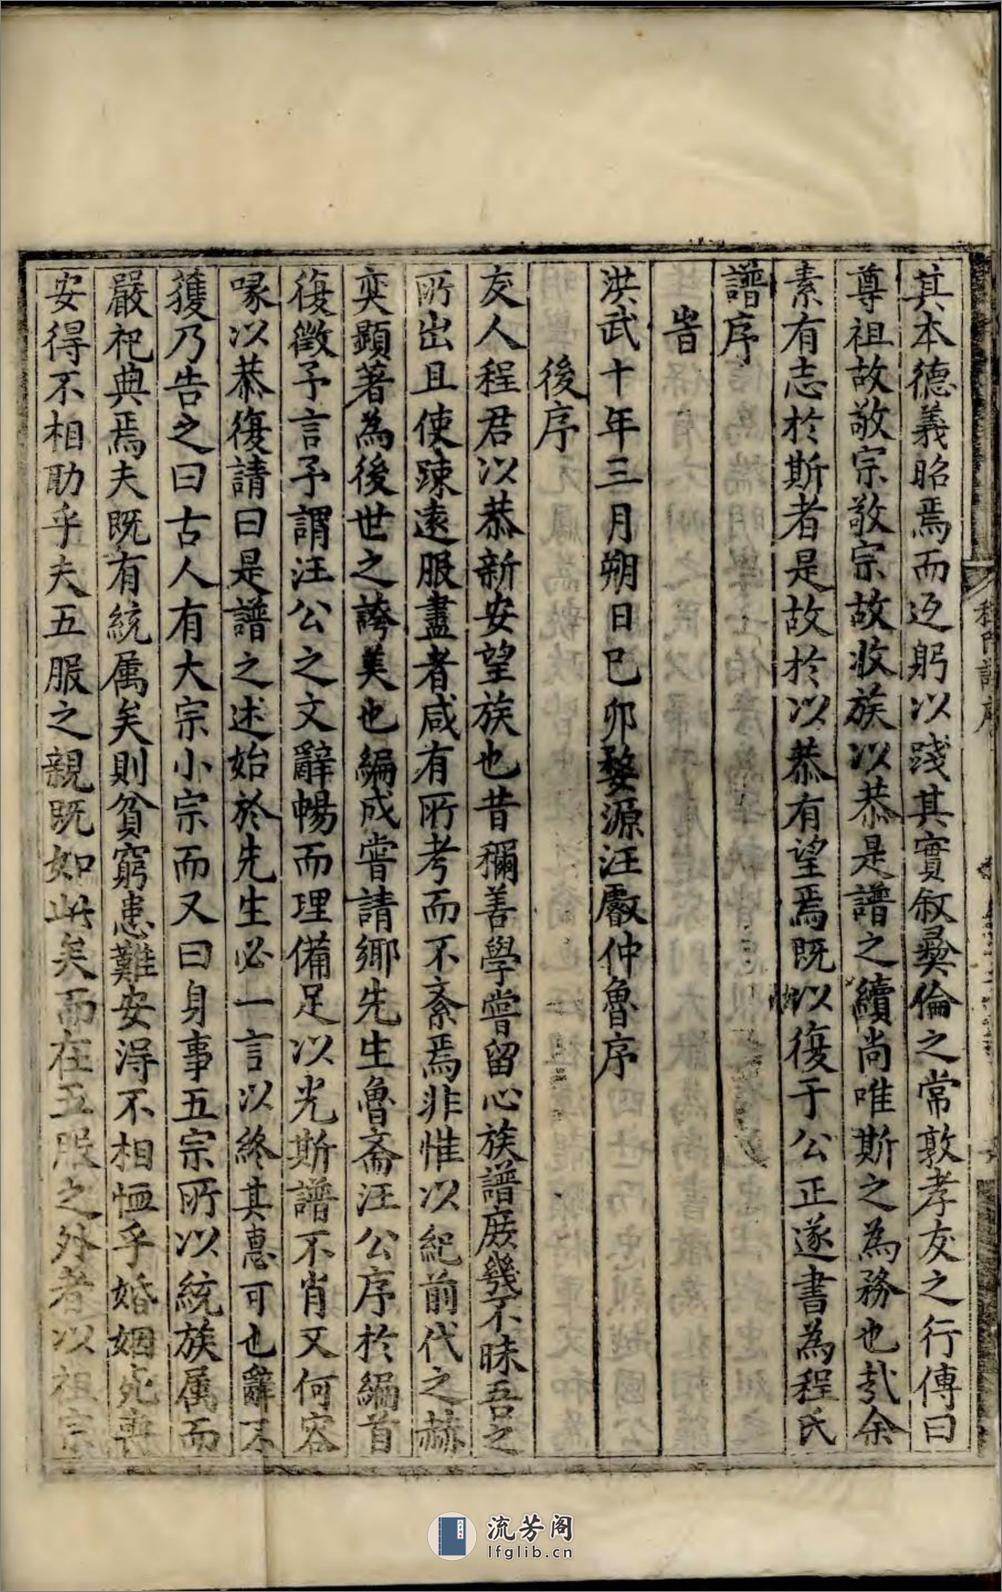 其本德義昭焉而迈躬以踐其實敘彛倫之常敦孝友之行傳曰
尊祖故敬宗敬宗故收族以恭是譜之續尚唯斯之為務也㢤余
素有志於斯者是故於以恭有望焉既以復于公正遂書為程氏
譜序
旹
洪武十年三月朔日己卯婺源汪叡仲魯序
後序
友人程君以恭新安望族也昔穪善學嘗留心族譜庻幾不昧吾之
所出且使踈遠服盡者咸有所考而不紊焉非惟以紀前代之赫
奕顯著為後世之誇美也編成嘗請鄉先生魯齋汪公序於編首
復徵予言予謂汪公之文辭暢而理備足以光斯譜不肖又何容
喙以恭復請曰是譜之述始於先生必一言以終其惠可也辭不
獲乃告之曰古人有大宗小宗而又曰身事五宗所以統族属而
嚴祀典焉夫既有統属矣則貧窮患難安得不相恤乎婚姻死喪
安得不相助乎夫五服之親既如此矣而在五服之外者以祖宗
流芳阁
lfglib.cn